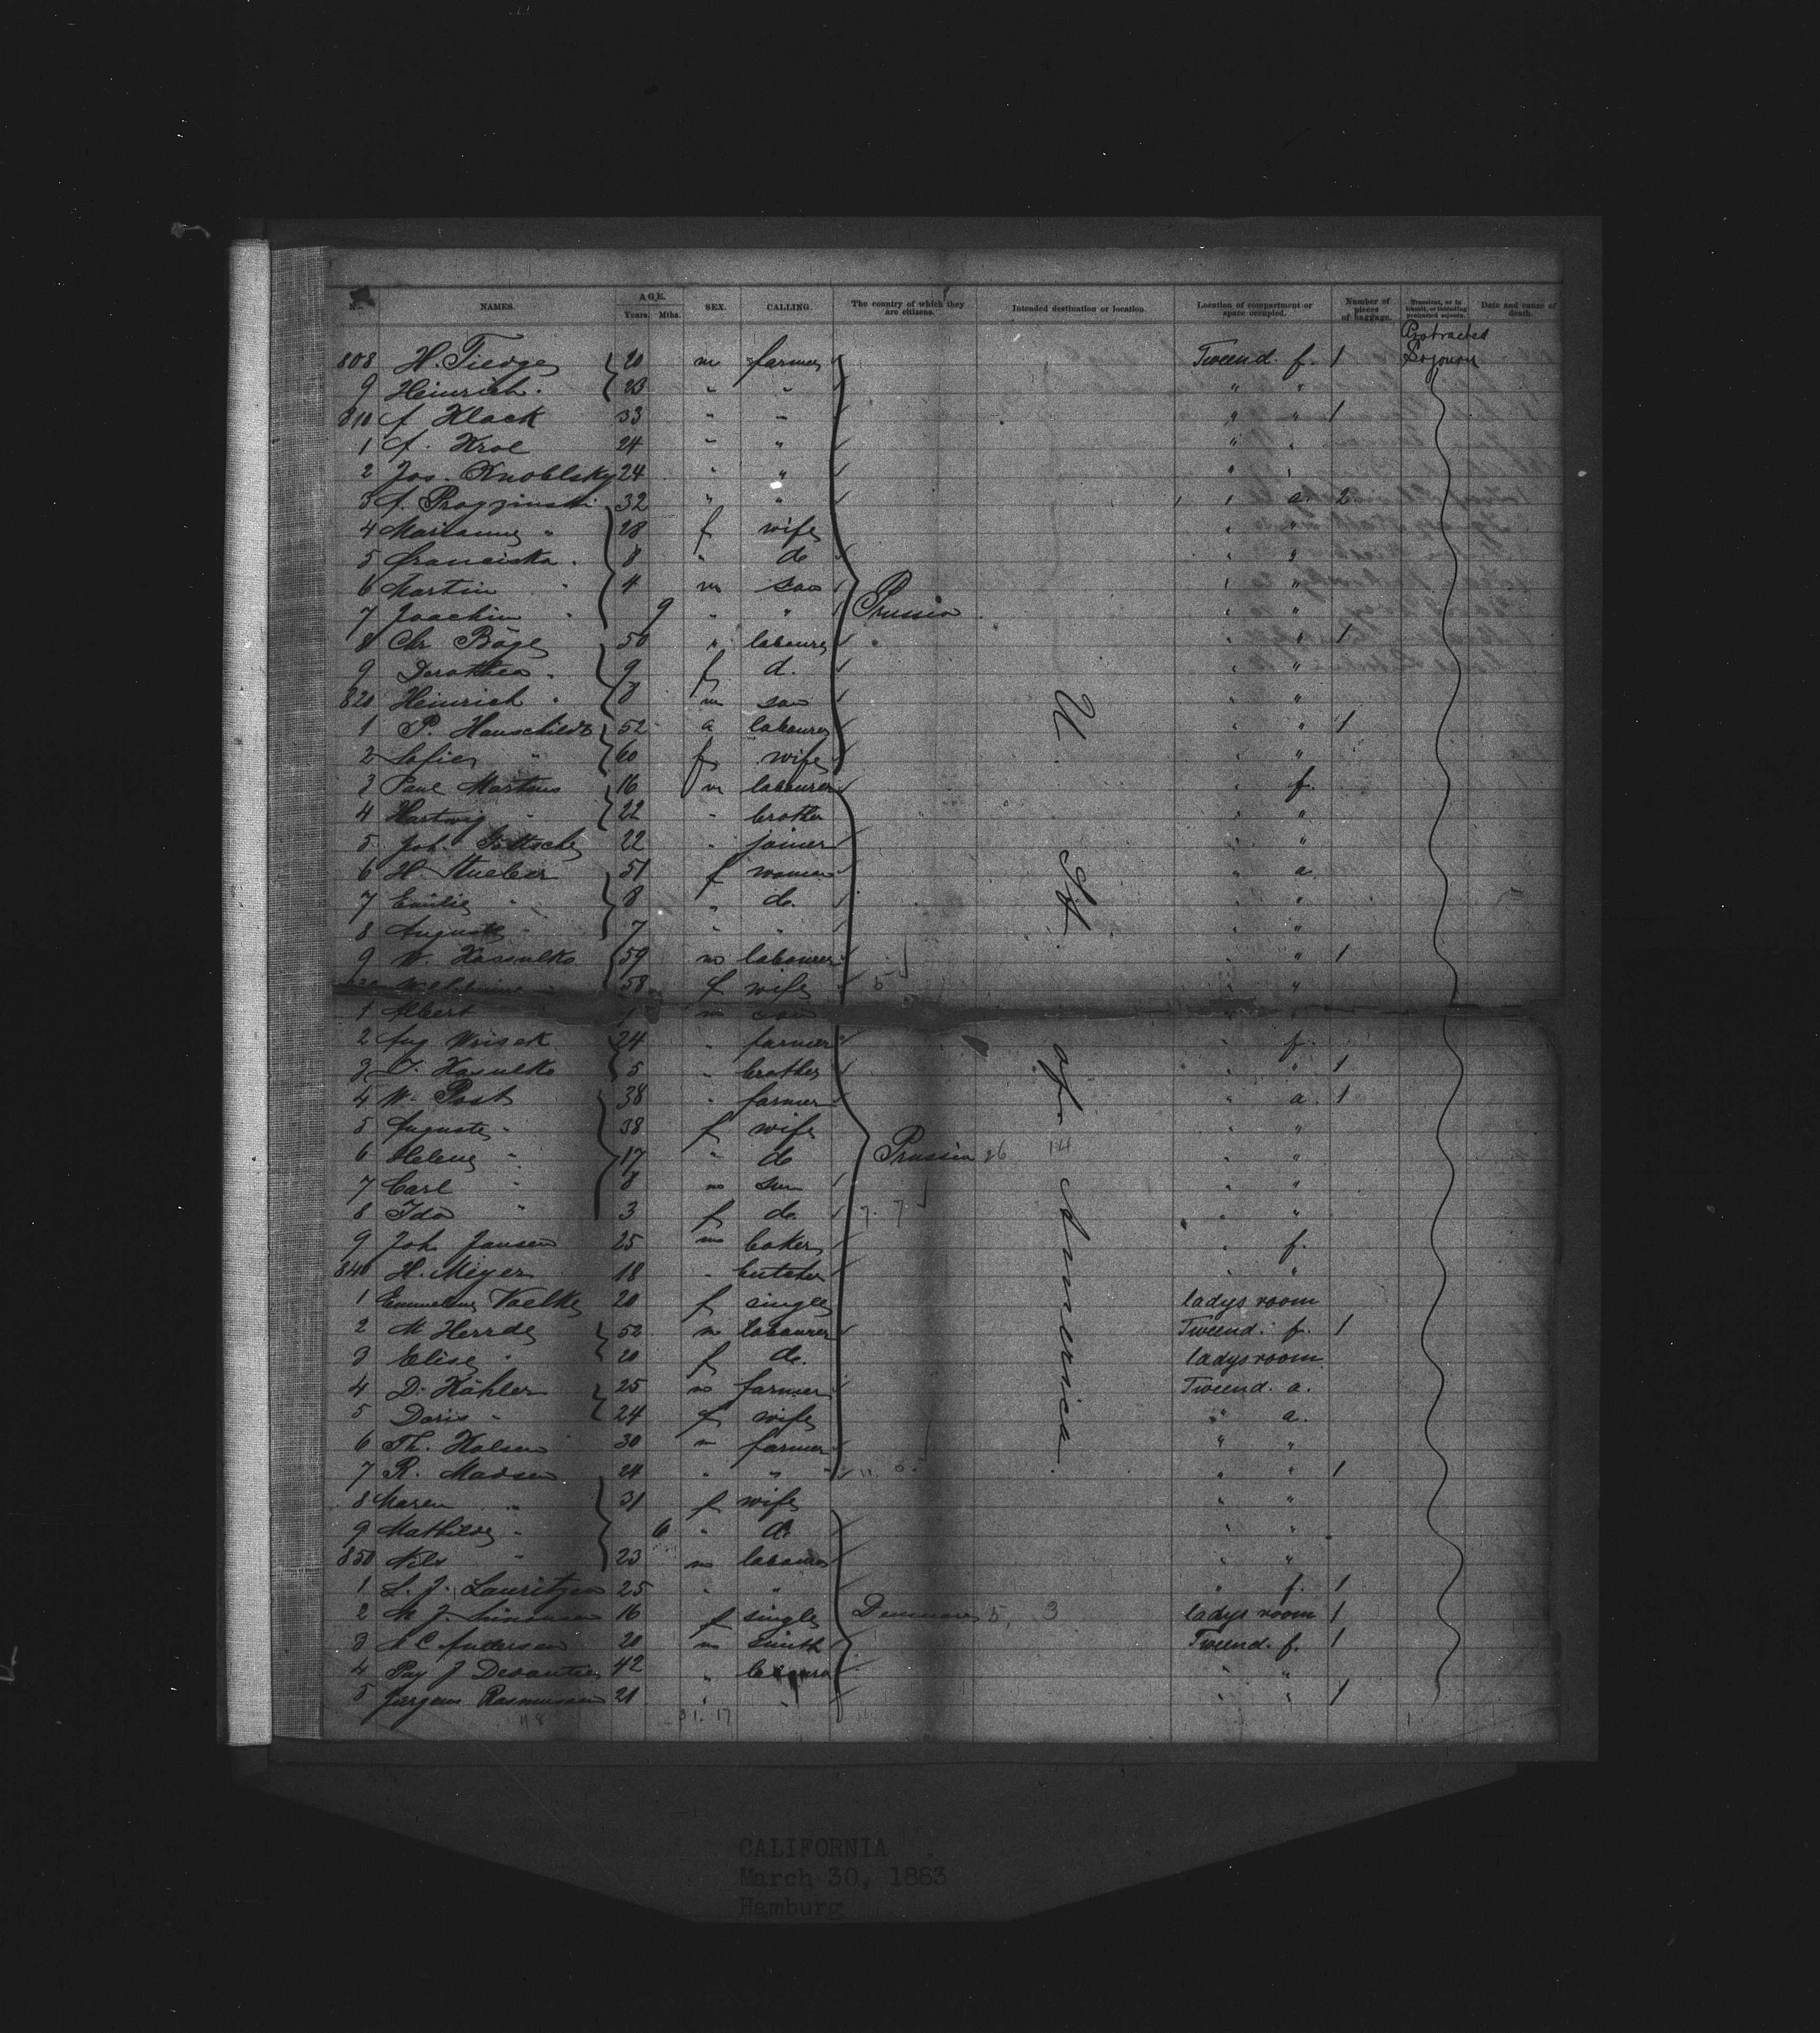 No. NAMES. AGE. Years. Mths. SEX. CALLING. The country of which they are citizens. Intended destination or location. Location of compartment or space occupied. Number of pieces of baggage. Transient, or in transit, or intending protracted sojourn. Date and cause of death.
Protracted
808 H. Tiedge 20 m farmer Tweend. f. 1 Sojourn
9 Heinrich " 23 " " " "
810 f Klack 33 " " " " 1
1 f. Krol 24 " " " "
2 Jos. Knoblsky 24 " " " "
3 f. 32 " " " a. 2
4 Marianne " 28 f wife " "
5 Franciska " 8 " do " "
6 Martin " 4 m son " "
7 Joachim " 9 " " Prussia " "
8 Chr. Böge 50 " labourer " " 1
9 Dorothea " 9 f d. " "
820 Heinrich " 8 m son " "
1 P. Hauschildt 52 a labourer " " 1
2 Sofie " 60 f wife " "
3 Paul Martens 16 m labourer " f.
4 Hartwig " 22 " brother " "
5 Joh. Göttsche 22 " joiner " "
6 H. Stueber 51 f woman " a.
7 Emilie " 8 " do. " "
8 Auguste " 7 " " " "
9 W. Kassulke 59 m labourer " " 1
Wilhelmine " 58 f wife 5 " "
1 Albert m son
2 Aug 24 " farmer " f.
3 Kasulke 5 " brother " " 1
4 W. Post 38 " farmer " a. 1
5 Auguste " 38 f wife " "
6 Helene " 17 " do Prussia 26 14 " "
7 Carl " 8 m son " "
8 Ida " 3 f do. 7. 7 " "
9 Joh. Jansen 25 m baker " f.
840 H. Meyer 18 " butcher " "
1 Emmeline Voelke 20 f single ladys room
2 M Herrde 52 m labourer Tweend. f. 1
3 Elise " 20 f do. ladys room
4 D. Köhler 25 m farmer Tweend. a.
5 Doris " 24 f wife " a.
6 Th. Holsen 30 m farmer " "
7 R. Madsen 24 " " " " 1
8 Maren " 31 f wife " "
9 Mathilde " 6 " d. " "
850 Nils " 23 m labourer " "
1 S. J. Lauritzen 25 " " " f. 1
2 M J. Simonsen 16 f single Denmark 5, 3 ladys room 1
3 N C Andersen 20 m smith Tweend. f. 1
4 Pay J 42 " " "
5 Jørgen Rasmussen 21 " " " " 1
118 31. 17
U. St. of America.
CALIFORNIA
March 30, 1883
Hamburg